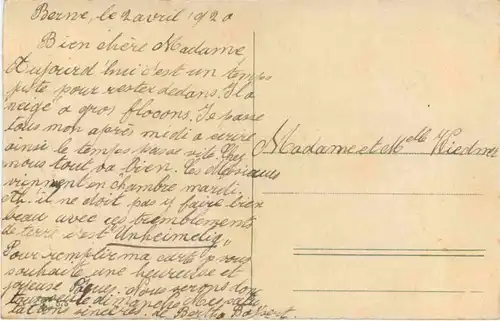 Berne, le 2 avril 1920
Bien chère Madame
Aujourd'hui c'est un temps
juste pour rester dedans. Il a
neigé a gros flocons. Je passe
tous mon après midi a ecrire
ainsi le temps passe vite. Chez
nous tout va Bien. Les
viennent en chambre mardi.
Oth. il ne doit pas y faire bien
beau avec ces tremblements
de terre c'est "Unheimelig"
Pour remplir ma carte je vous
souhaite une heureuse et
joyeuse Pâques. Nous verons donc
dimanche. Mes
sincères. de Bertha
Madame et Mlle Wiedmer